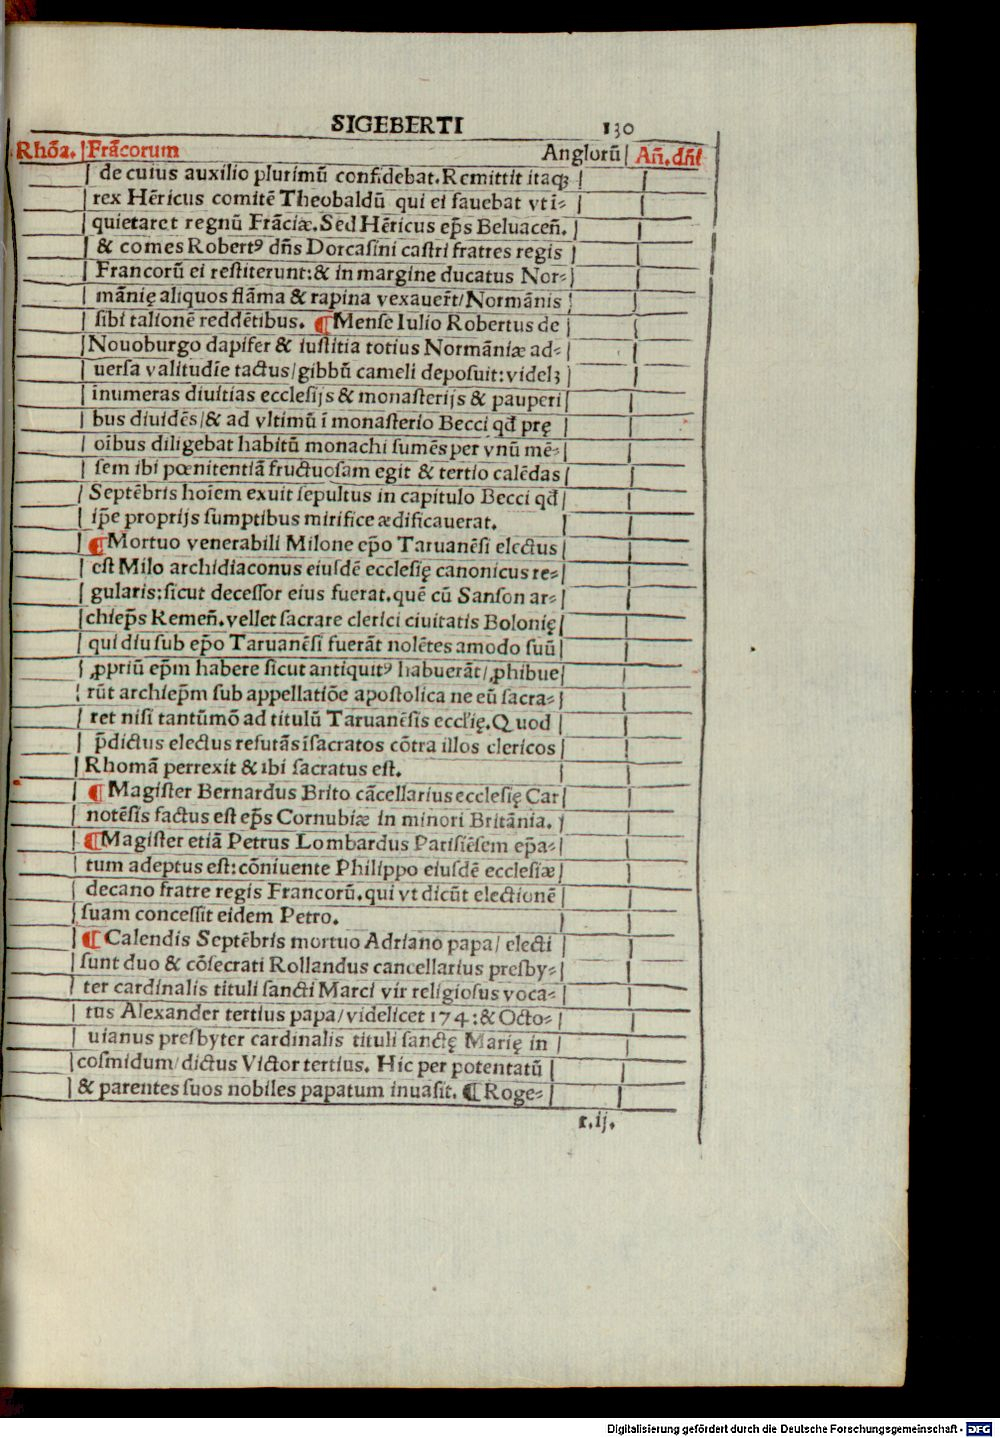 SIGEBERTI 130
Rhōa. Frācorum Anglorū Añ.dñi
de cuius auxilio plurimū confidebat. Remittit itaqꝫ
rex Hēricus comitē Theobaldū qui ei fauebat vti⸗
quietaret regnū Frāciæ. Sed Hēricus ep̄s Beluaceñ.
& comes Robertꝰ dñs Dorcasini castri fratres regis
Francorū ei restiterunt: & in margine ducatus Nor⸗
mānię aliquos flāma & rapina vexauer̄t/ Normānis
sibi talionē reddētibus. ¶ Mense Iulio Robertus de
Nouoburgo dapifer & iustitia totius Normāniæ ad⸗
uersa valitudīe tactus/ gibbū cameli deposuit: videlꝫ
īnumeras diuitias ecclesijs & monasterijs & pauperi
bus diuidēs/ & ad vltimū ī monasterio Becci qđ prę
oībus diligebat habitū monachi sumēs per vnū mē⸗
sem ibi pœnitentiā fructuosam egit & tertio calēdas
Septēbris hoīem exuit sepultus in capitulo Becci qđ
ip̄e proprijs sumptibus mirifice ædificauerat.
¶ Mortuo venerabili Milone ep̄o Taruanēsi electus
est Milo archidiaconus eiusdē ecclesię canonicus re⸗
gularis: sicut decessor eius fuerat. quē cū Sanson ar⸗
chiep̄s Remeñ. vellet sacrare clerici ciuitatis Bolonię
qui diu sub ep̄o Taruanēsi fuerāt nolētes amodo suū
ꝓpriū ep̄m habere sicut antiquitꝰ habuerāt/ ꝓhibue
rūt archiep̄m sub appellatiōe apostolica ne eū sacra⸗
ret nisi tantūmō ad titulū Taruanēsis eccl̄ię. Quod
p̄dictus electus refutās īsacratos cōtra illos clericos
Rhomā perrexit & ibi sacratus est.
¶ Magister Bernardus Brito cācellarius ecclesię Car
notēsis factus est ep̄s Cornubiæ in minori Britānia.
¶ Magister etiā Petrus Lombardus Parisiēsem ep̄a⸗
tum adeptus est: cōniuente Philippo eiusdē ecclesiæ
decano fratre regis Francorū. qui vt dicūt electionē
suam concessit eidem Petro.
¶ Calendis Septēbris mortuo Adriano papa/ electi
sunt duo & cōsecrati Rollandus cancellarius presby⸗
ter cardinalis tituli sancti Marci vir religiosus voca⸗
tus Alexander tertius papa/ videlicet 174: & Octo⸗
uianus presbyter cardinalis tituli sanctę Marię in
cosmidum/ dictus Victor tertius. Hic per potentatū
& parentes suos nobiles papatum inuasit. ¶ Roge⸗
r.ij.
Digitalisierung gefördert durch die Deutsche Forschungsgemeinschaft - DFG